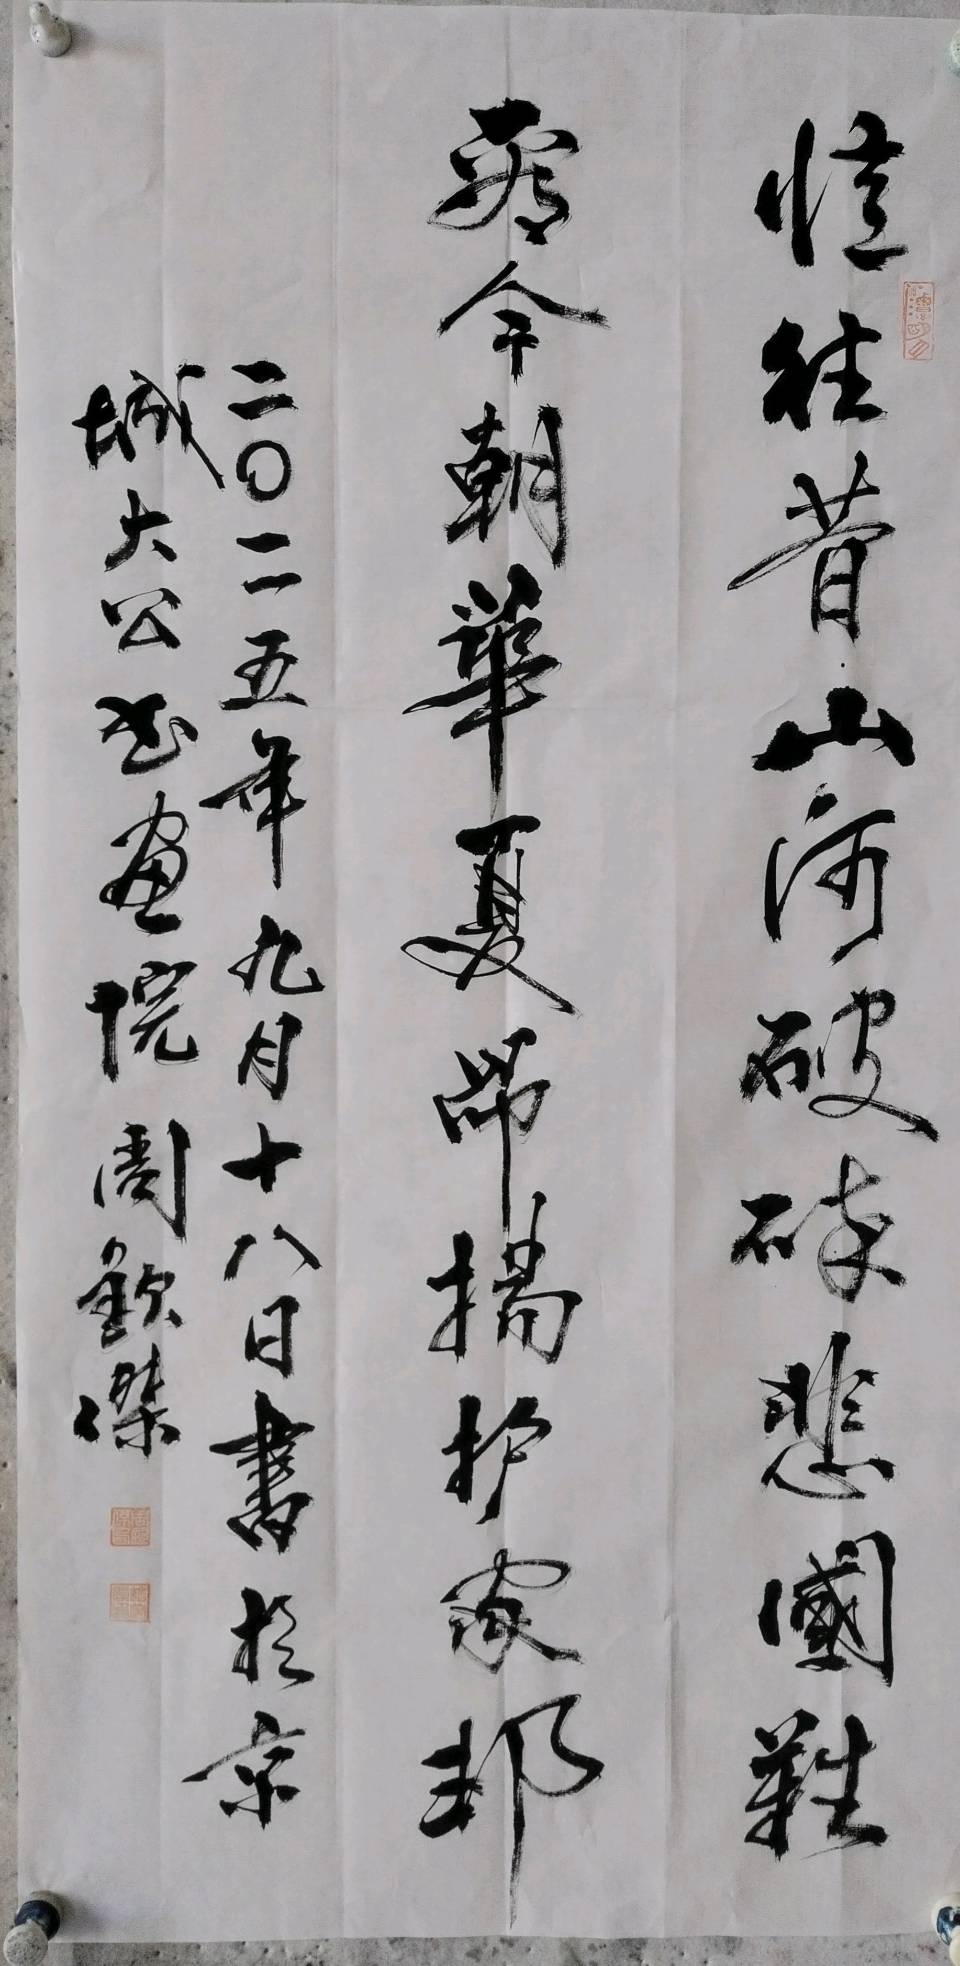 忆往昔山河破碎悲國難
看今朝華夏昂揚护家邦
二〇二五年九月十八日書於京
城大公书画院周欽傑